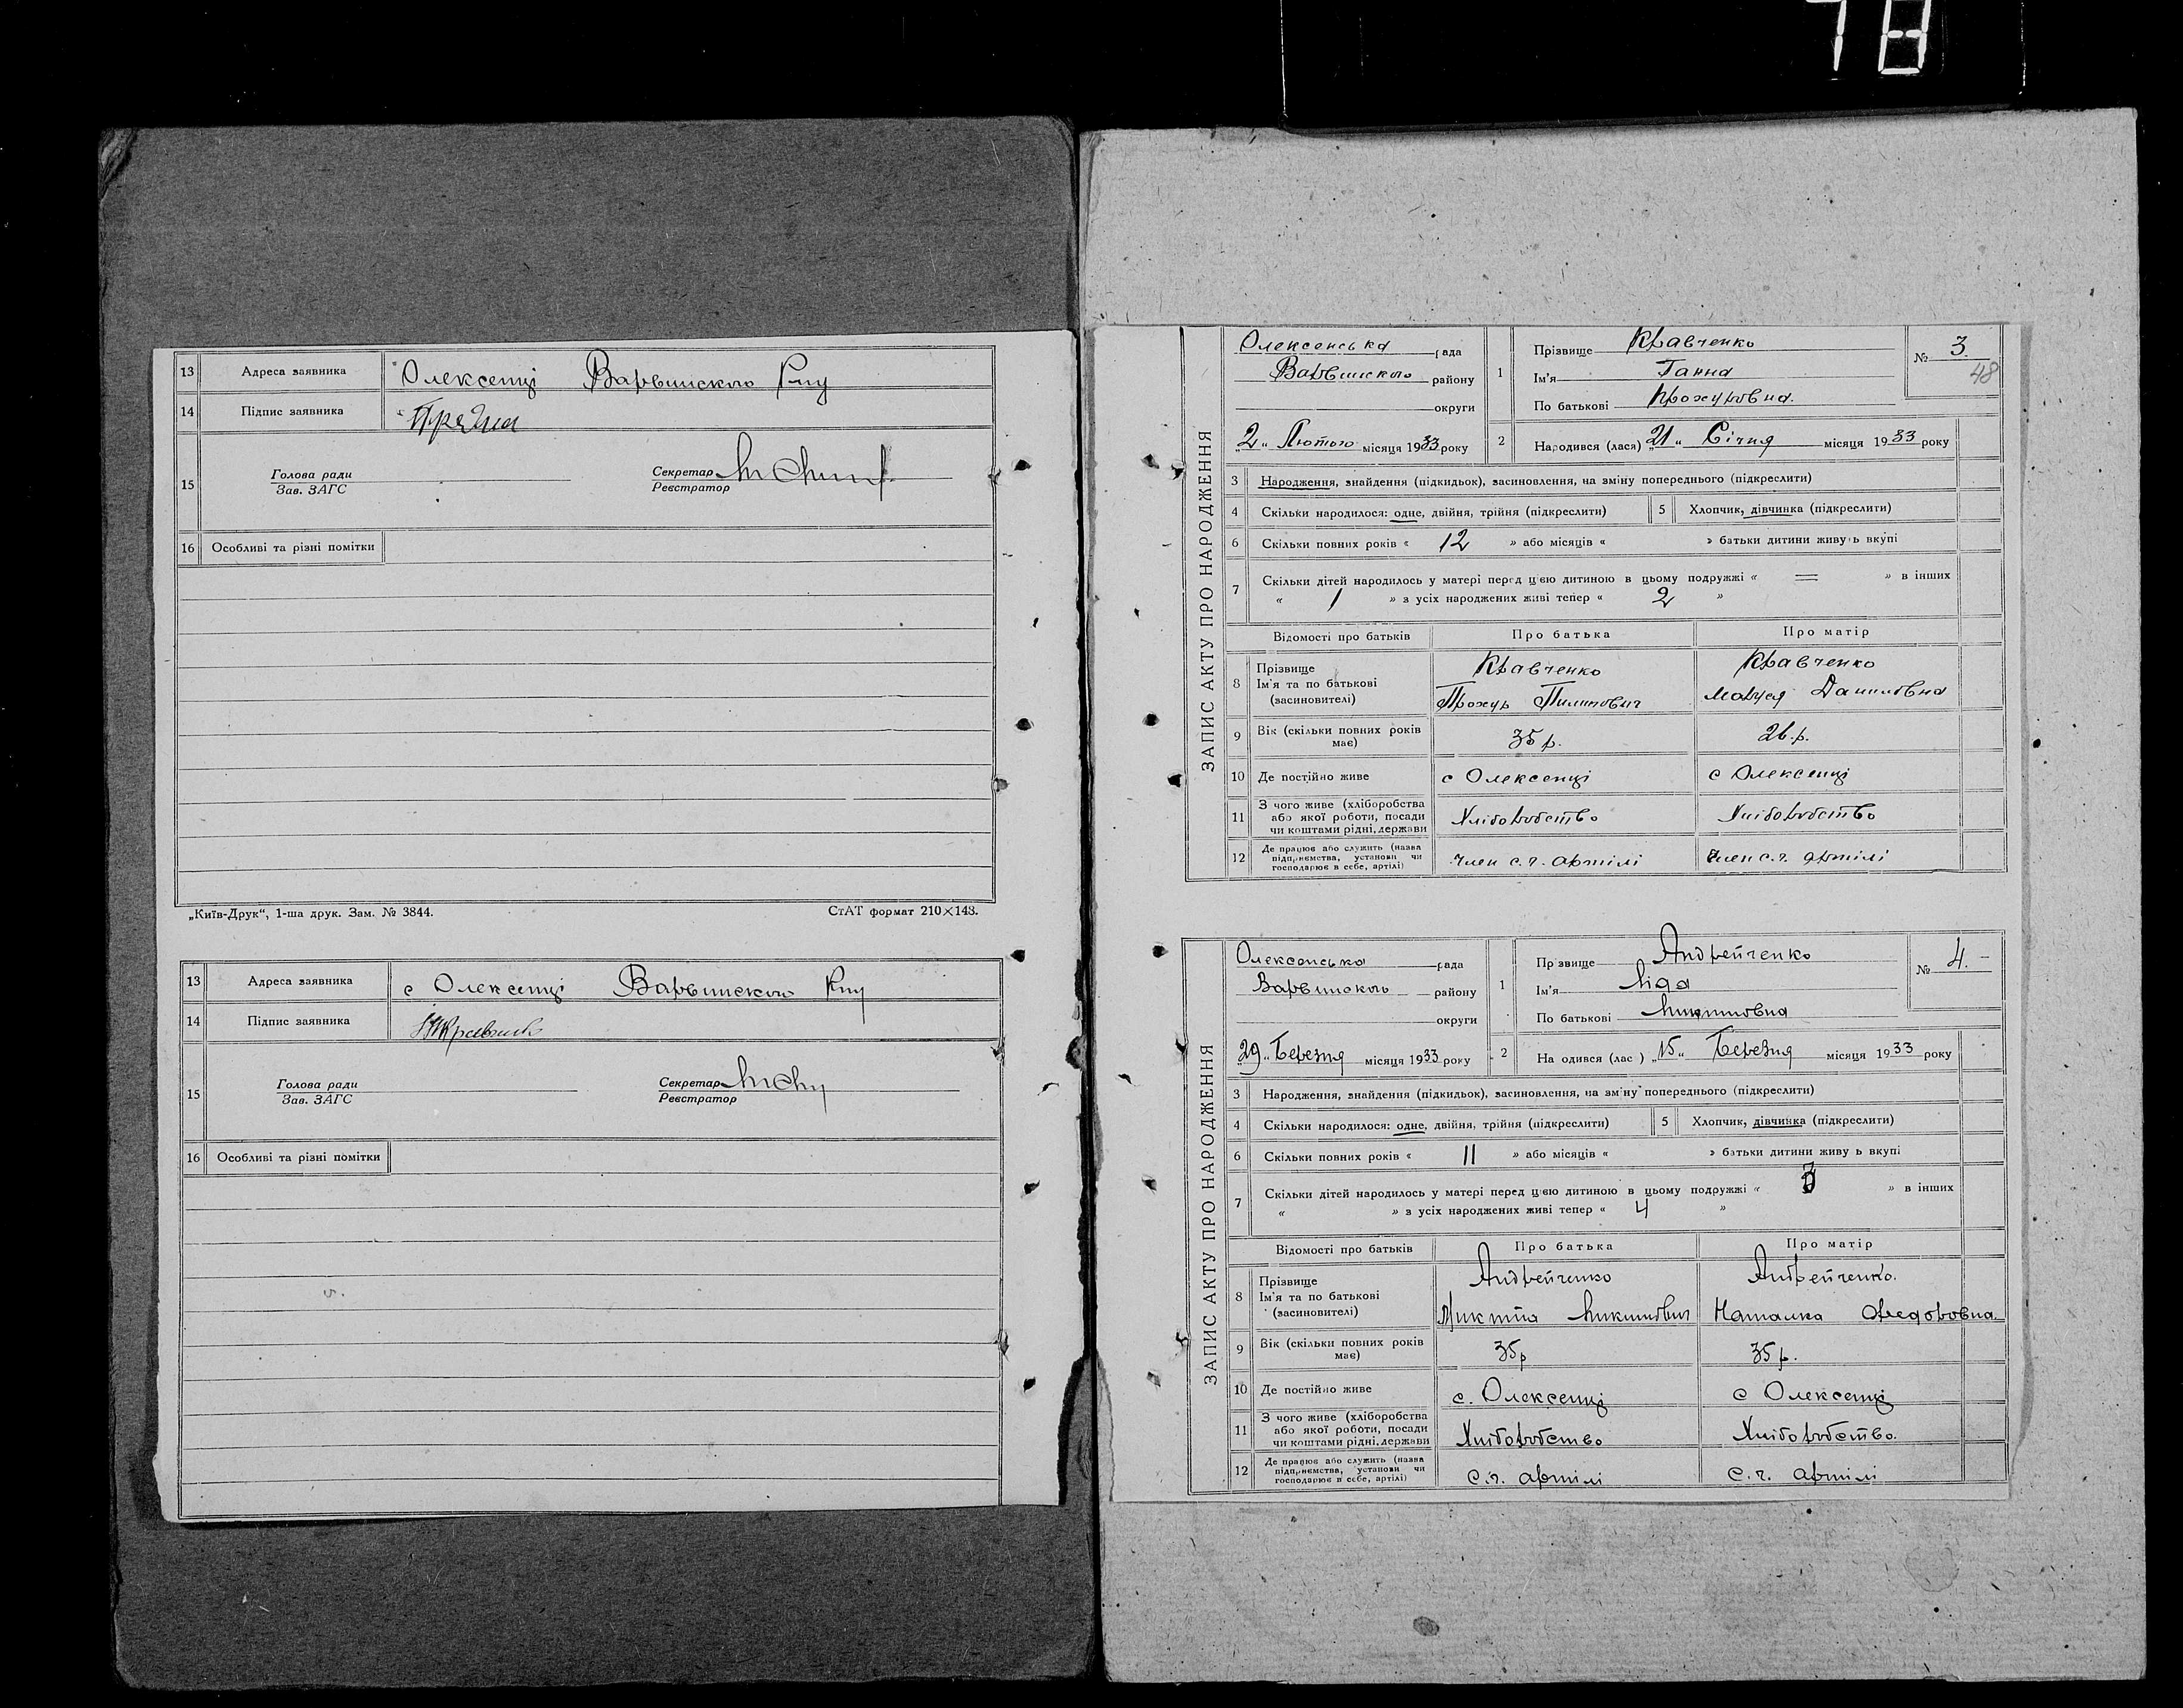 78
13 Адреса заявника Олексенці Варвинского Р-ну
14 Підпис заявника
15 Голова ради Секретар
Зав. ЗАГС Реєстратор
16 Особливі та різні помітки
„Київ-Друк“, 1-ша друк. Зам. № 3844. СтАТ формат 210×148.
13 Адреса заявника с Олексенці Варвинского Р-ну
14 Підпис заявника
15 Голова ради Секретар
Зав. ЗАГС Реєстратор
16 Особливі та різні помітки
ЗАПИС АКТУ ПРО НАРОДЖЕННЯ
Олексенська рада
Варвинского району
округи
„2„ Лютого місяця 1933 року
1 Прізвище Кравченко
Ім'я Ганна
По батькові Прохуровна.
№ 3.
48
2 Народився (лася) „21„ Січня місяця 1933 року
3 Народження, знайдення (підкидьок), засиновлення, на зміну попереднього (підкреслити)
4 Скільки народилося: одне, двійня, трійня (підкреслити) 5 Хлопчик, дівчинка (підкреслити)
6 Скільки повних років « 12 » або місяців « » батьки дитини живуть вкупі
7 Скільки дітей народилось у матері перед цією дитиною в цьому подружжі « = » в інших
« 1 » з усіх народжених живі тепер « 2 »
Відомості про батьків Про батька Про матір
8 Прізвище Кравченко Кравченко
Ім'я та по батькові
(засиновителі) Прохур Пилипович Маруся Даниловна
9 Вік (скільки повних років має) 35 р. 26.р.
10 Де постійно живе с Олексенці с Олексенці
11 З чого живе (хліборобства
або якої роботи, посади Хліборобство Хліборобство
чи коштами рідні, держави
12 Де працює або служить (назва
підприємства, установи чи член с.г. артілі Член с.г. артілі
господарює в себе, артілі)
ЗАПИС АКТУ ПРО НАРОДЖЕННЯ
Олексенська рада
Варвинского району
округи
„29„ Березня місяця 1933 року
1 Прізвище Андрейченко
Ім'я Ліда
По батькові Микитовна
№ 4.-
2 На одився (лас ) „15„ Березня місяця 1933 року
3 Народження, знайдення (підкидьок), засиновлення, на зміну попереднього (підкреслити)
4 Скільки народилося: одне, двійня, трійня (підкреслити) 5 Хлопчик, дівчинка (підкреслити)
6 Скільки повних років « 11 » або місяців « » батьки дитини живу ь вкупі
7 Скільки дітей народилось у матері перед цією дитиною в цьому подружжі « 3 » в інших
« » з усіх народжених живі тепер « 4 »
Відомості про батьків Про батька Про матір
8 Прізвище Андрейченко Андрейченко.
Ім'я та по батькові
(засиновителі) Микита Микитович Наталка Федоровна.
9 Вік (скільки повних років має) 35р 35 р.
10 Де постійно живе с. Олексенці с Олексенці
11 З чого живе (хліборобства
або якої роботи, посади Хліборобство Хліборобство.
чи коштами рідні, держави
12 Де працює або служить (назва
підприємства, установи чи с.г. артілі с.г. артілі
господарює в себе, артілі)